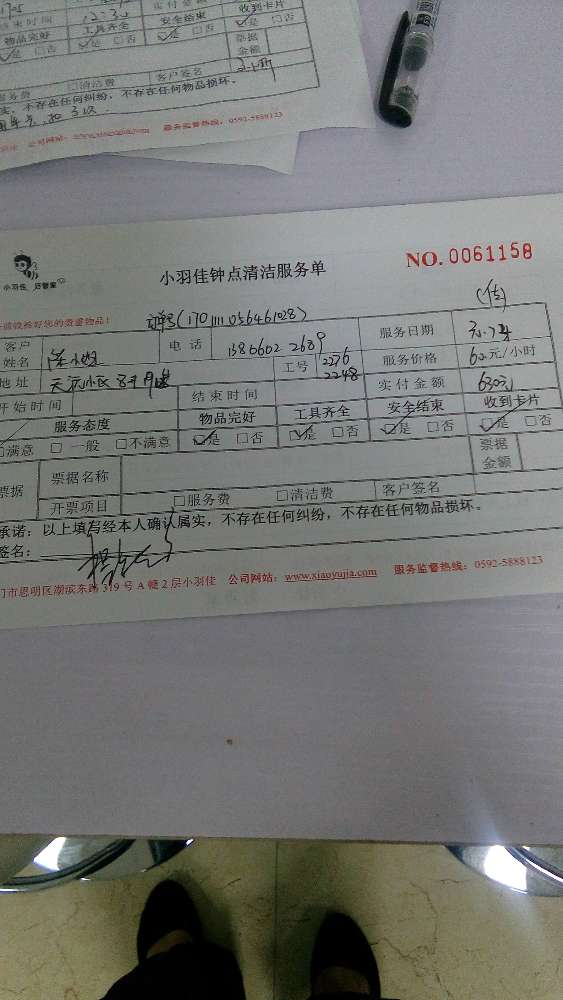 结束时间
实付金额
物品完好 工具齐全 安全结束 收到卡片
是 □否 □是 □否 是 □否 是 □否
票据
金额
服务费 □清洁费 客户签名
不存在任何纠纷，不存在任何物品损坏。
公司网站：www.xiaoyujia.com 服务监督热线：0592-5888123
小羽佳 后管家
小羽佳钟点清洁服务单
NO. 0061158
保管好您的贵重物品！
(170111056461028)
客户
姓名
电话 13806022689
工号 2276
2248
服务日期
服务价格 62元/小时
地址
结束时间
实付金额 630元
开始时间
服务态度 物品完好 工具齐全 安全结束 收到卡片
□满意 □一般 □不满意 □是 □否 □是 □否 □是 □否 □是 □否
票据 票据名称 票据
金额
开票项目 □服务费 □清洁费 客户签名
承诺：以上填写经本人确认属实，不存在任何纠纷，不存在任何物品损坏。
签名：
门市思明区湖滨东路319号A幢2层小羽佳 公司网站：www.xiaoyujia.com 服务监督热线：0592-5888123